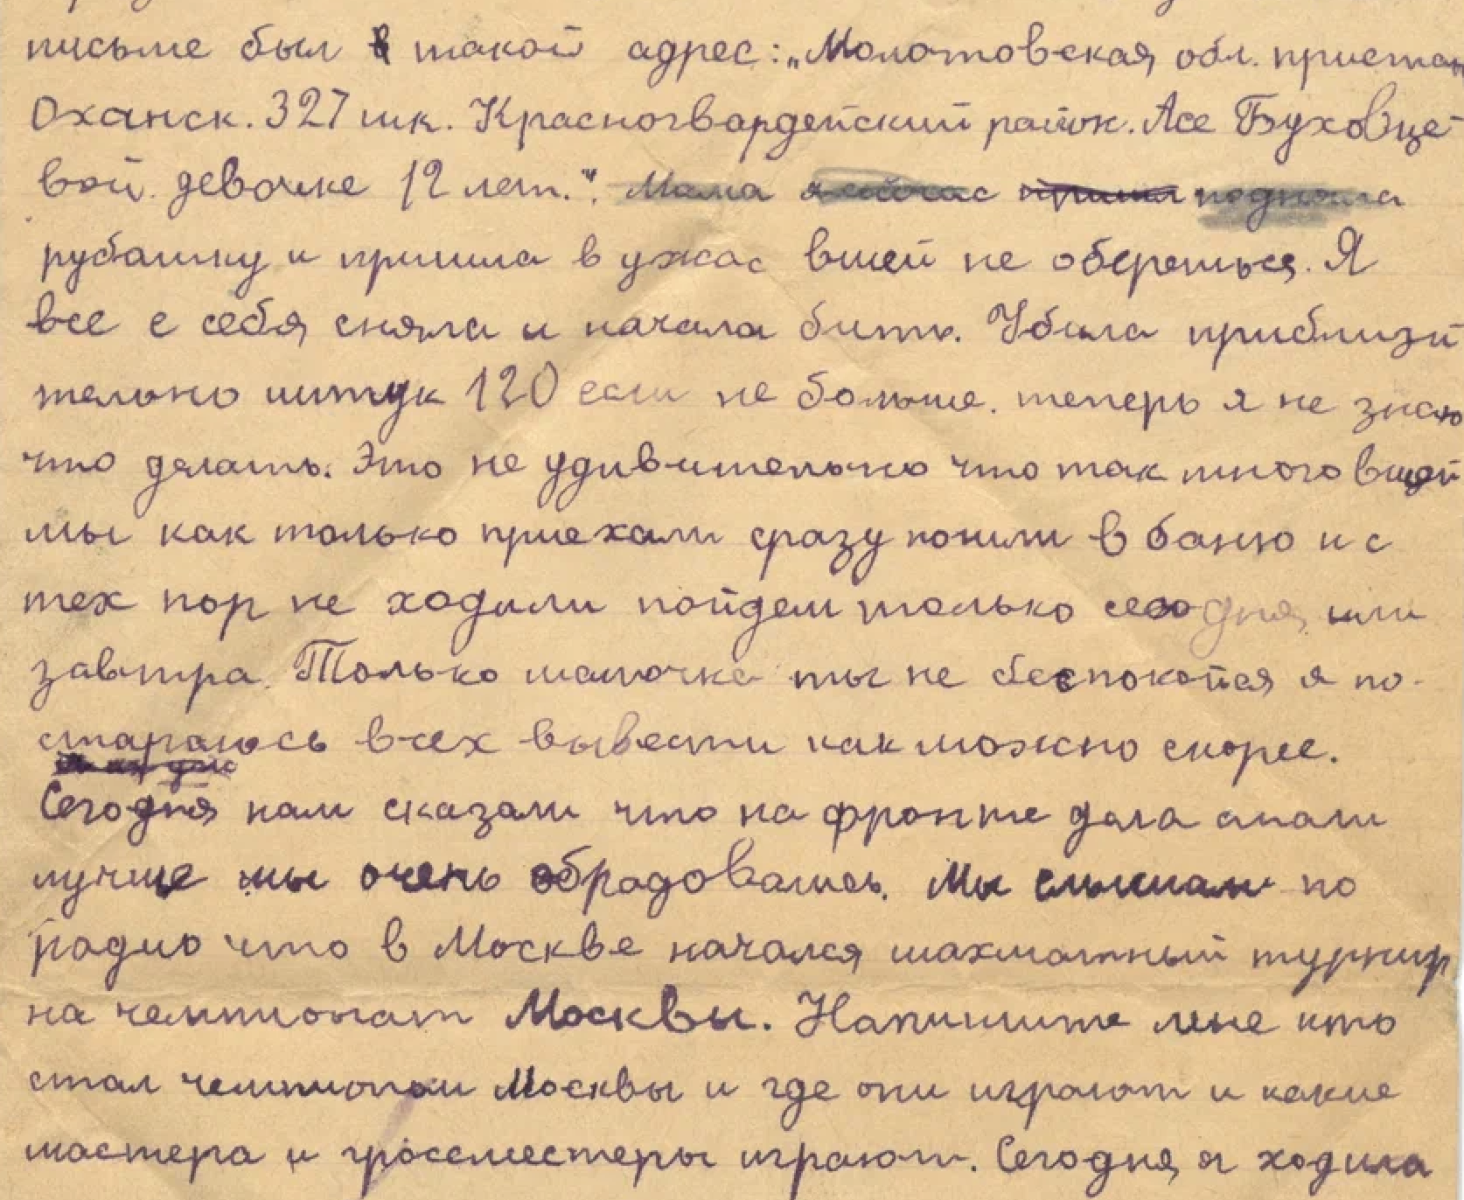 письме был в такой адрес: „Молотовская обл. пристан
Оханск. 327 шк. Красногвардейский район. Асе Буховце-
вой девочке 12 лет.". Мама я сейчас пришла подняла
рубашку и пришла в ужас вшей не оберешься. Я
все с себя сняла и начала бить. Убила приблизи
тельно штук 120 если не больше. теперь я не знаю
что делать. Это не удивительно что так много вшей
мы как только приехали сразу пошли в баню и с
тех пор не ходили пойдем только сегодня или
завтра. Только мамочка ты не беспокойся я по-
стараюсь всех вывести как можно скорее.
Сегодня нам сказали что на фронте дела стали
лучше мы очень обрадовались. Мы слышали по
радио что в Москве начался шахматный турнир
на чемпионат Москвы. Напишите мне кто
стал чемпионом Москвы и где они играют и какие
мастера и гроссместеры играют. Сегодня я ходила